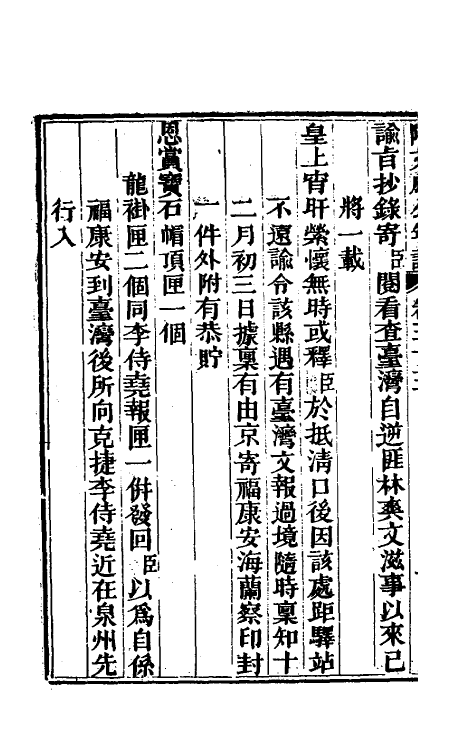 諭旨抄錄寄臣閱看查臺灣自逆匪林爽文滋事以來已
將一載
皇上宵旰縈懷無時或釋臣於抵清口後因該處距驛站
不遠諭令該縣遇有臺灣文報過境隨時稟知十
二月初三日據稟有由京寄福康安海蘭察印封
一件外附有恭貯
恩賞寶石帽頂匣一個
龍褂匣二個同李侍堯報匣一併發回臣以爲自係
福康安到臺灣後所向克捷李侍堯近在泉州先
行入